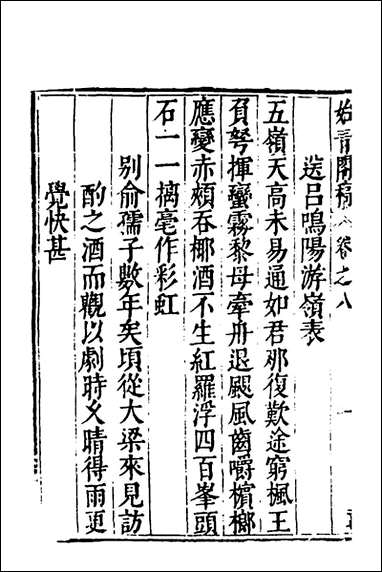 始青閣稿卷之八
送呂鳴陽游嶺表
五嶺天高未易通如君那復歎途窮楓王
負弩揮蠻霧黎母牽舟退颶風齒嚼檳榔
應變赤頰吞椰酒不生紅羅浮四百峯頭
石一一摛毫作彩虹
別俞孺子數年矣頃從大梁來見訪
酌之酒而觀以劇時久晴得雨更
覺快甚